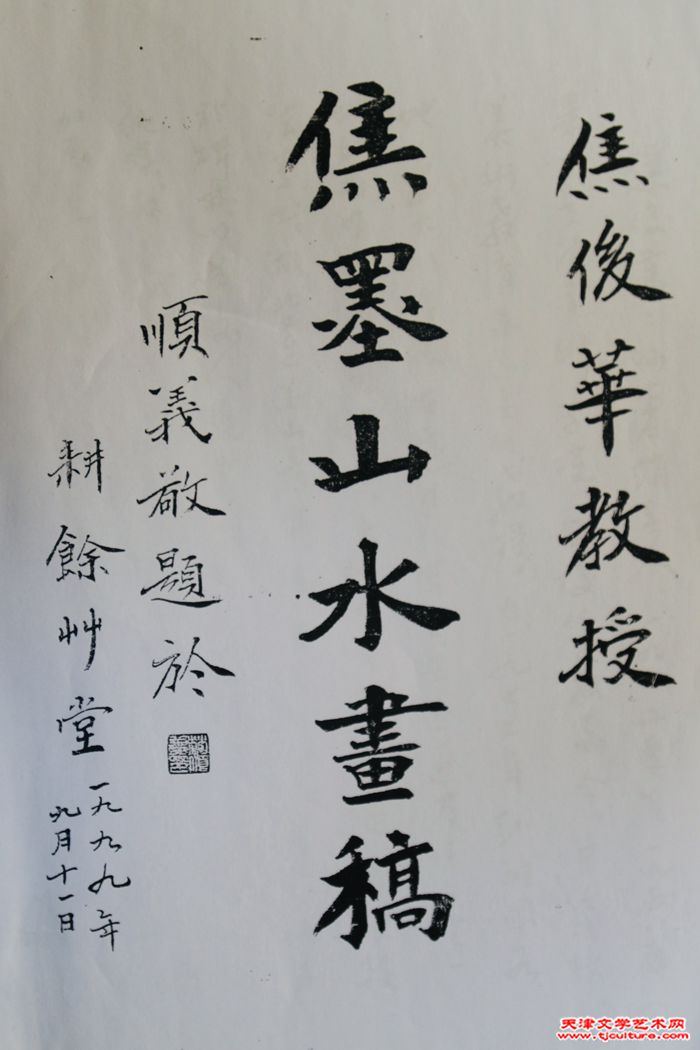 焦俊華教授
焦墨山水畫稿
順義敬題於
耕餘艸堂
一九九九年
九月十一日
天津文学艺术网
www.tjculture.com